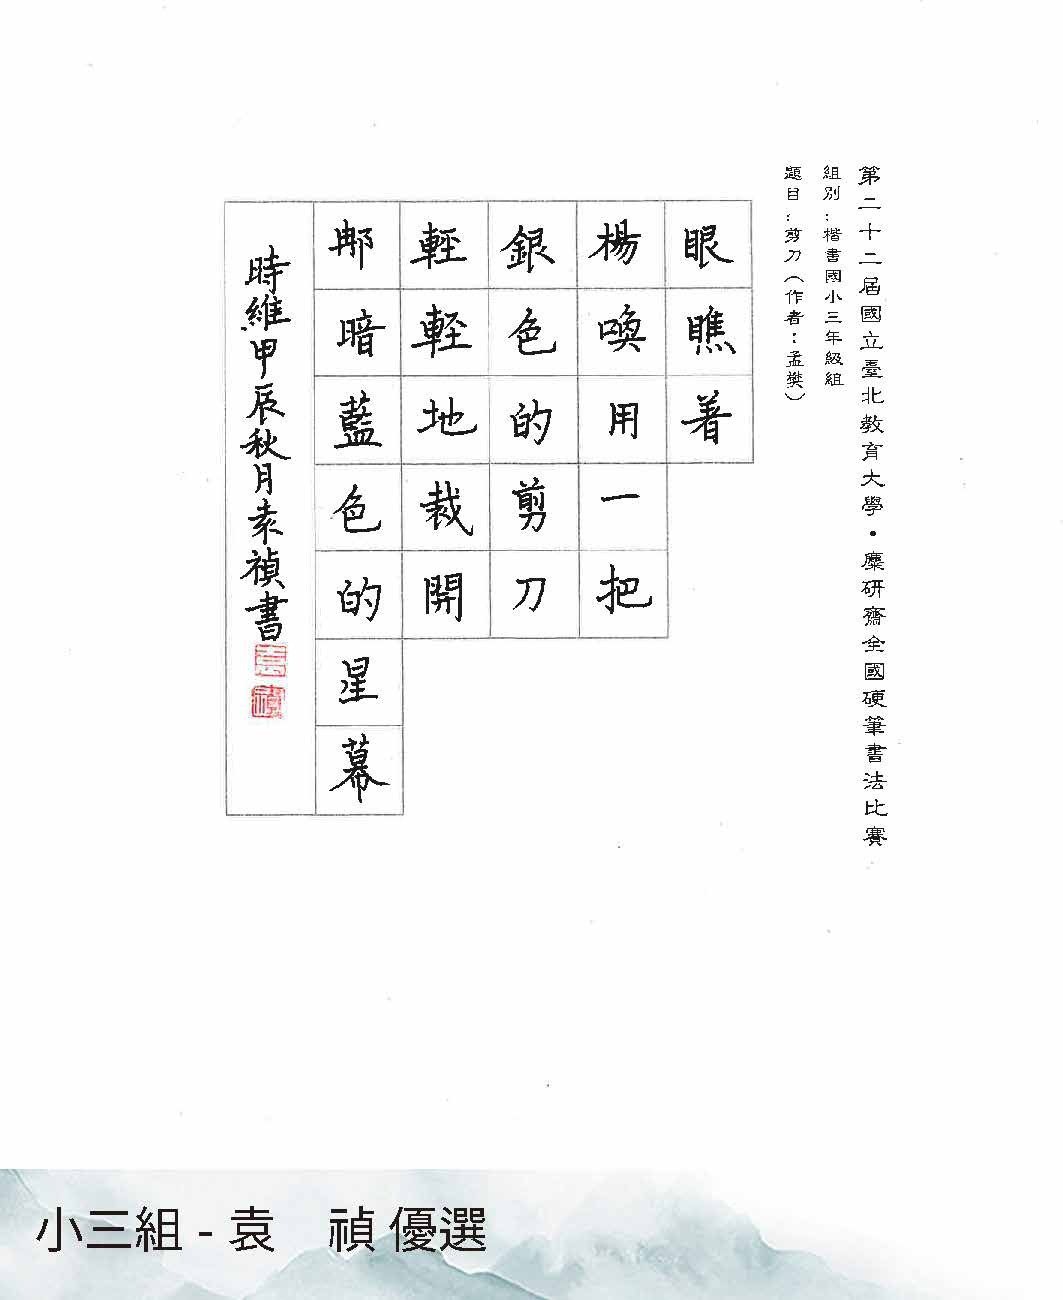 第二十二屆國立臺北教育大學・麋研齋全國硬筆書法比賽
組別：楷書國小三年級組
題目：剪刀（作者：孟樊）
眼瞧着
楊喚用一把
銀色的剪刀
輕輕地裁開
那暗藍色的星幕
時維甲辰秋月袁禎書
袁
禎
小三組 - 袁　禎 優選